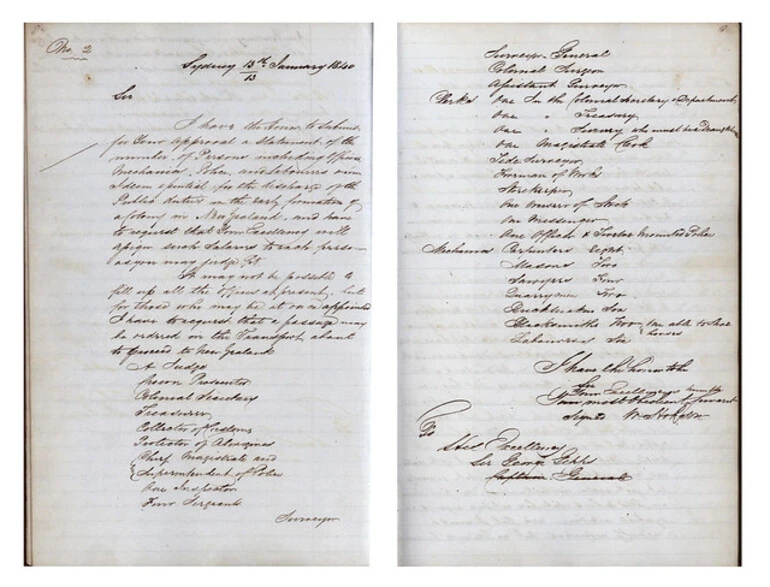 No. 2
Sydney 13th January 1840
13
Sir
I have the honor to submit
for Your approval a statement of the
number of Persons including Officers
Mechanics, Police, and labourers whom
I deem essential for the discharge of the
Public duties in the early formation of
a Colony in New Zealand, and have
to request that Your Excellency will
assign such Salaries to each person
as you may judge fit.
It may not be possible to
fill up all the offices at present, but
for those who may be it once appointed
I have to request that a passage may
be ordered in the Transport about
to proceed to New Zealand
A Judge
Crown Prosecutor
Colonial Secretary
Treasurer
Collector of Customs
Protector of Aborigines
Chief Magistrate and
Superintendent of Police
One Inspector
Four Sergeants
Surveyor
Surveyor General
Colonial Surgeon
Assistant Surveyor
Clerks One In the Colonial Secretary's Department
One " Treasury
One " Survey who must be a Draughtsman
One Magistrate Clerk
Tide Surveyor
Foreman of Works
Storekeeper
One of Stock
One Messenger
One Officer & Twelve Mounted Police
Mechanics Carpenters Eight
Masons Two
Sawyers Four
Quarrymen Two
Brickmakers
Blacksmiths Two, one able to Shoe
horses
Labourers Six
I have the honor to be
Sir
Your Excellency's
Your most Obedient Servant
Signed W. Hobson
To
His Excellency
Sir George Gipps
Captain General